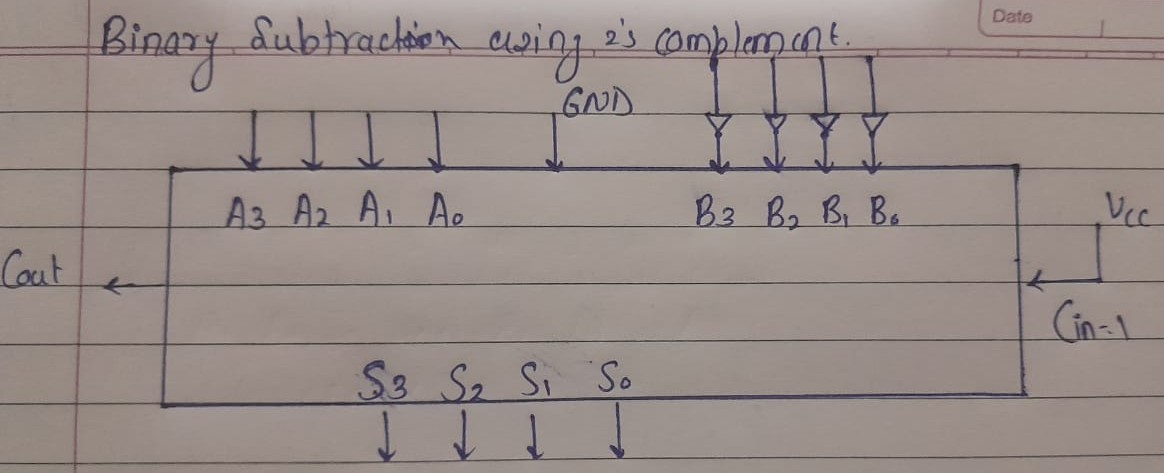 Date
Binary Subtraction using 2's complement.
GND
A3 A2 A1 A0 B3 B2 B1 B0
Vcc
Cout
Cin=1
S3 S2 S1 S0